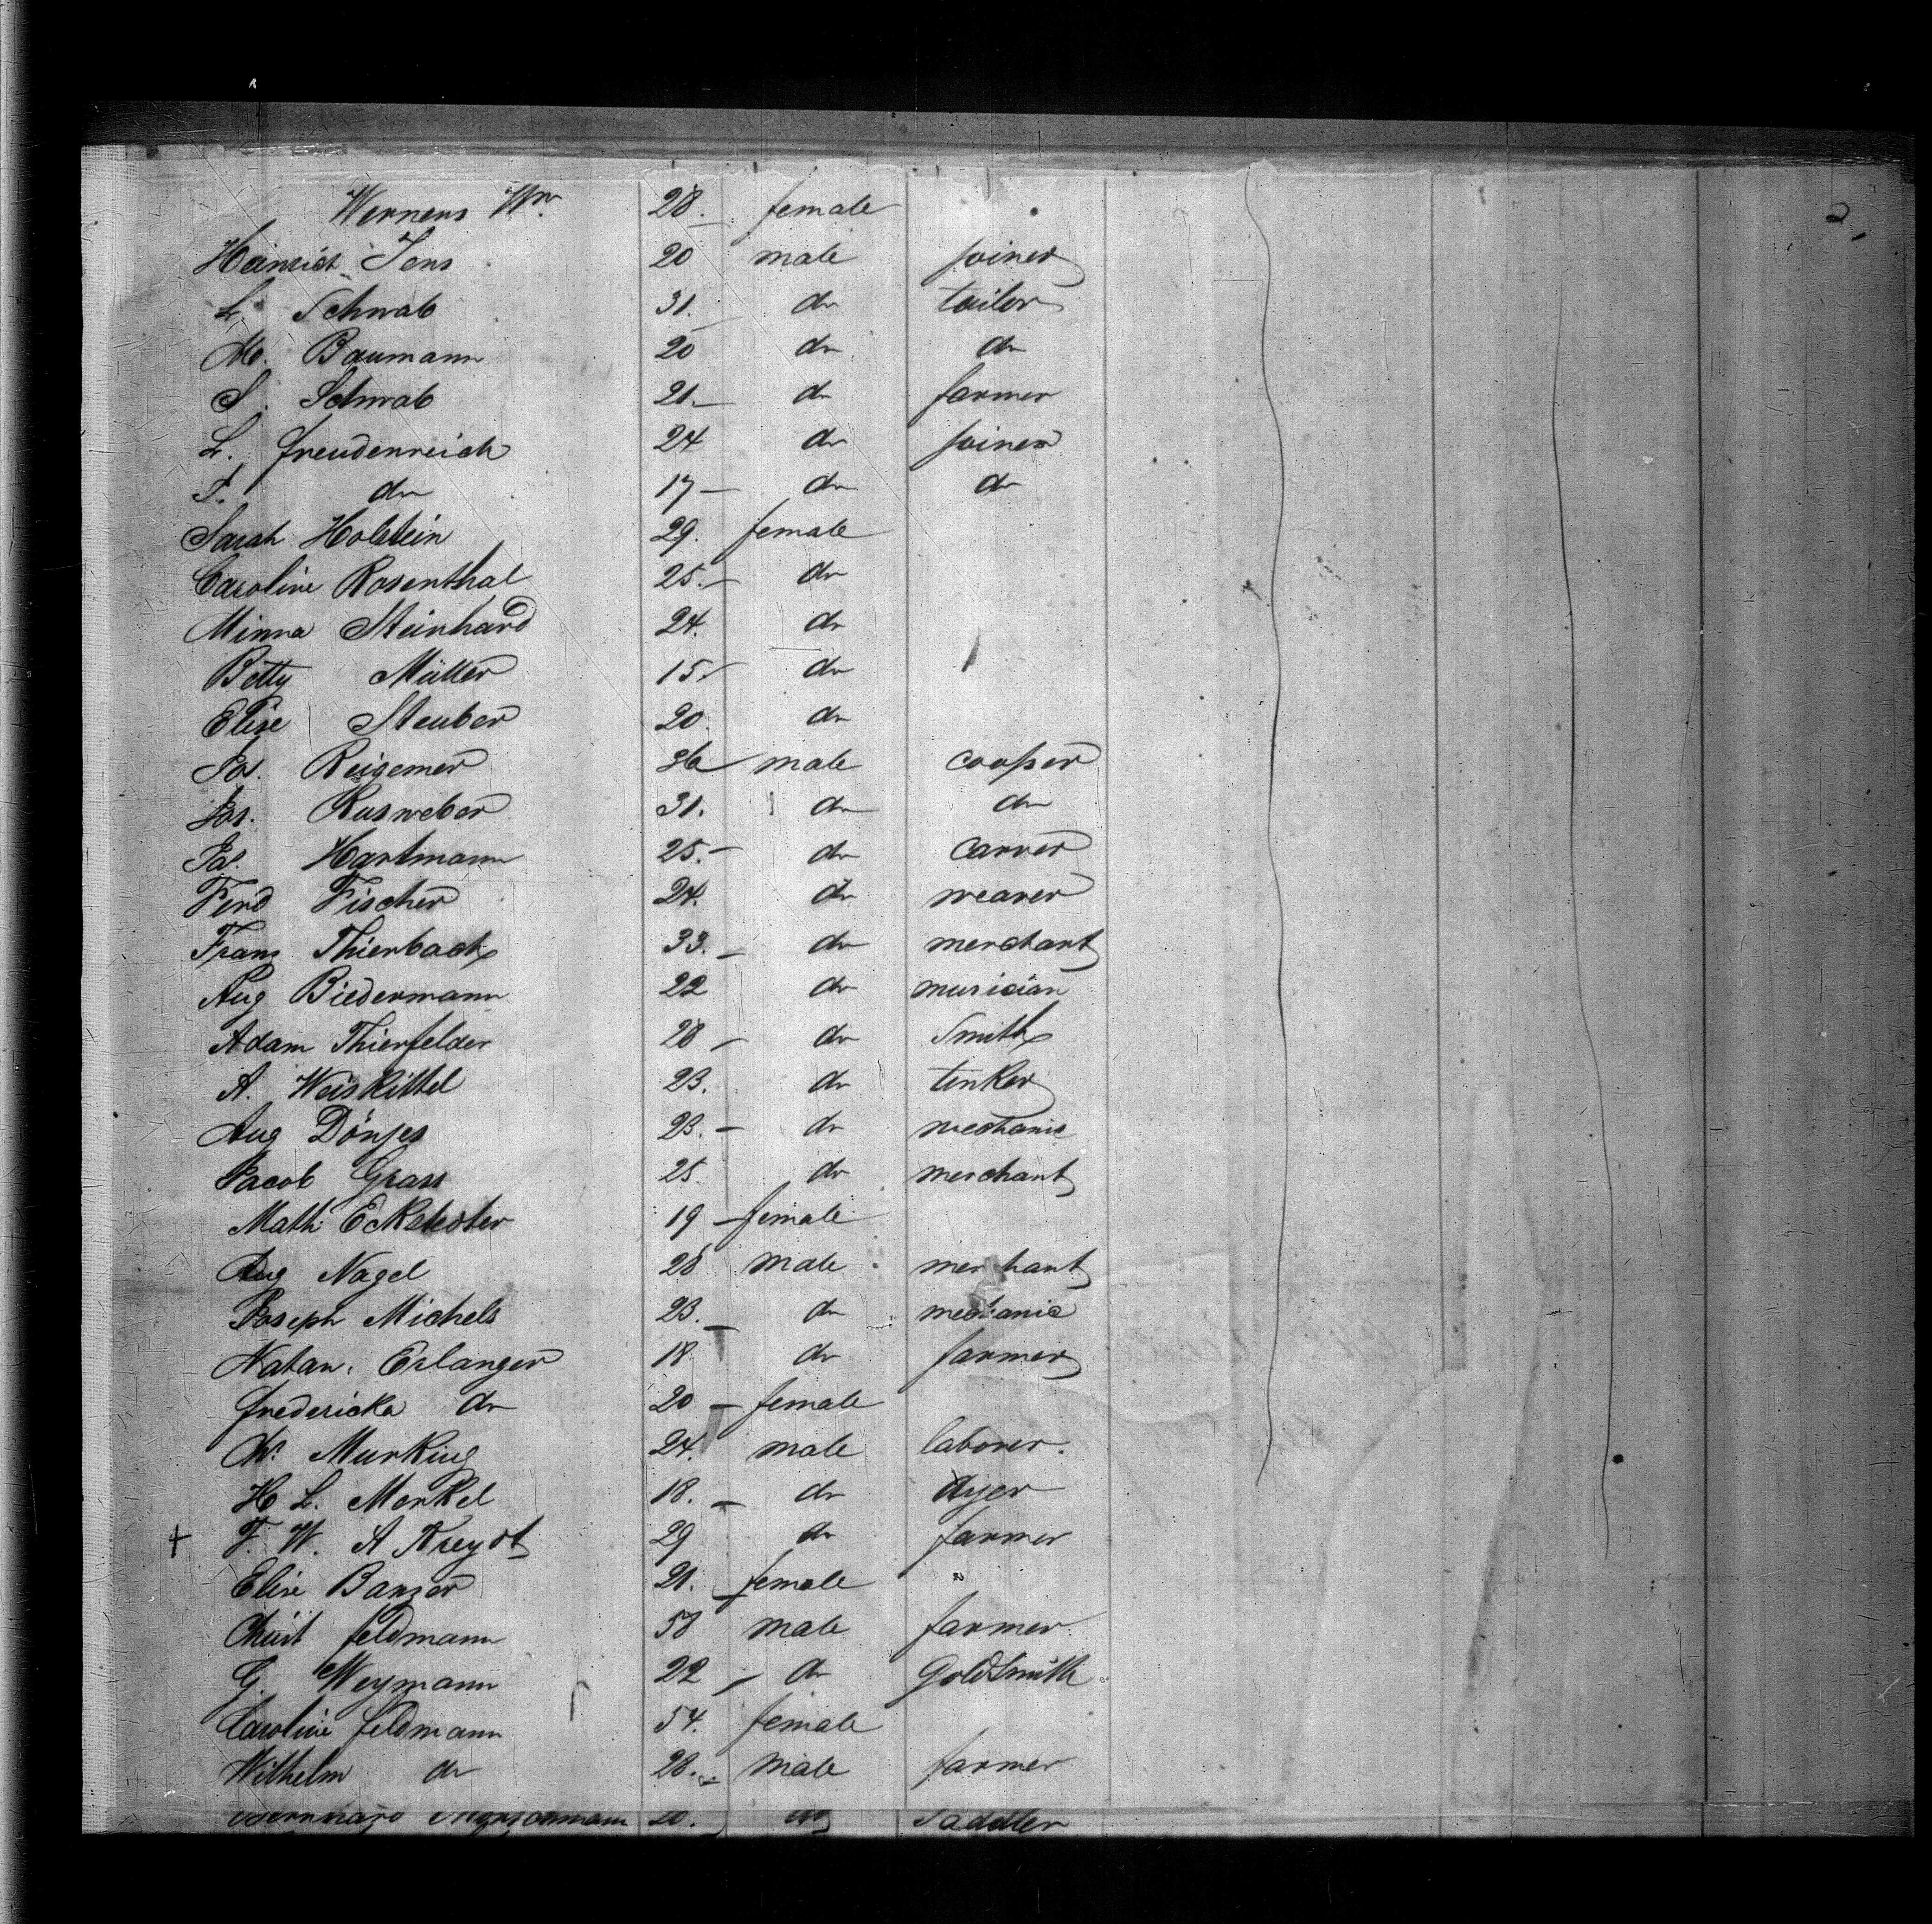 Werners Wm 28. female
Heinrich Jens 20 male joiner
L. Schwab 31. do tailor
M. Baumann 20 do do
S. Schwab 21. do farmer
L. Freudenreich 24 do joiner
do 17 do do
Sarah Holstein 29. female
Caroline Rosenthal 25. do
Minna Steinhard 24. do
Betty Müller 15 do
Elise Steuber 20. do
Jos. Reigemer 36 male cooper
Jos. Rusweber 31. do do
Hartmann 25. do carver
Ferd Fischer 24. do weaver
Franz Thierbach 33. do merchant
Aug Biedermann 22 do musician
Adam Thierfelder 28 do Smith
A. Weiskittel 23. do tinker
Aug Dönges 23. do mechanic
Jacob Grass 25. do merchant
Math. 19 female
Aug Nagel 28 male merchant
Joseph Michels 23. do mechanic
Natan. Erlanger 18 do farmer
Fredericka do 20 female
Murking 24. male laborer.
H L. Merkel 18. do dyer
+ F. W. A Kreydt 29 do farmer
Elise Banzer 21. female
Christ Feldmann 58 male farmer
G. Weymann 22 do Goldsmith
Caroline Feldmann 54. female
Wilhelm do 28. male farmer
Bernhard 20. do Saddler